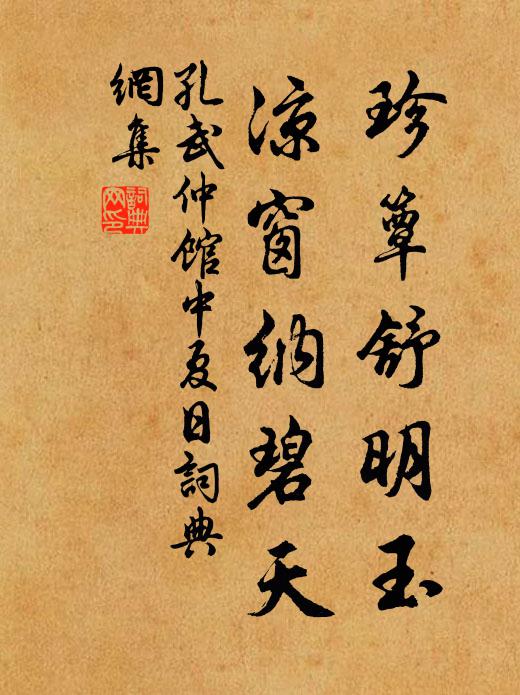 珍簟舒明玉
涼窗納碧天
孔武仲館中夏日詞典
網集
詞典網印